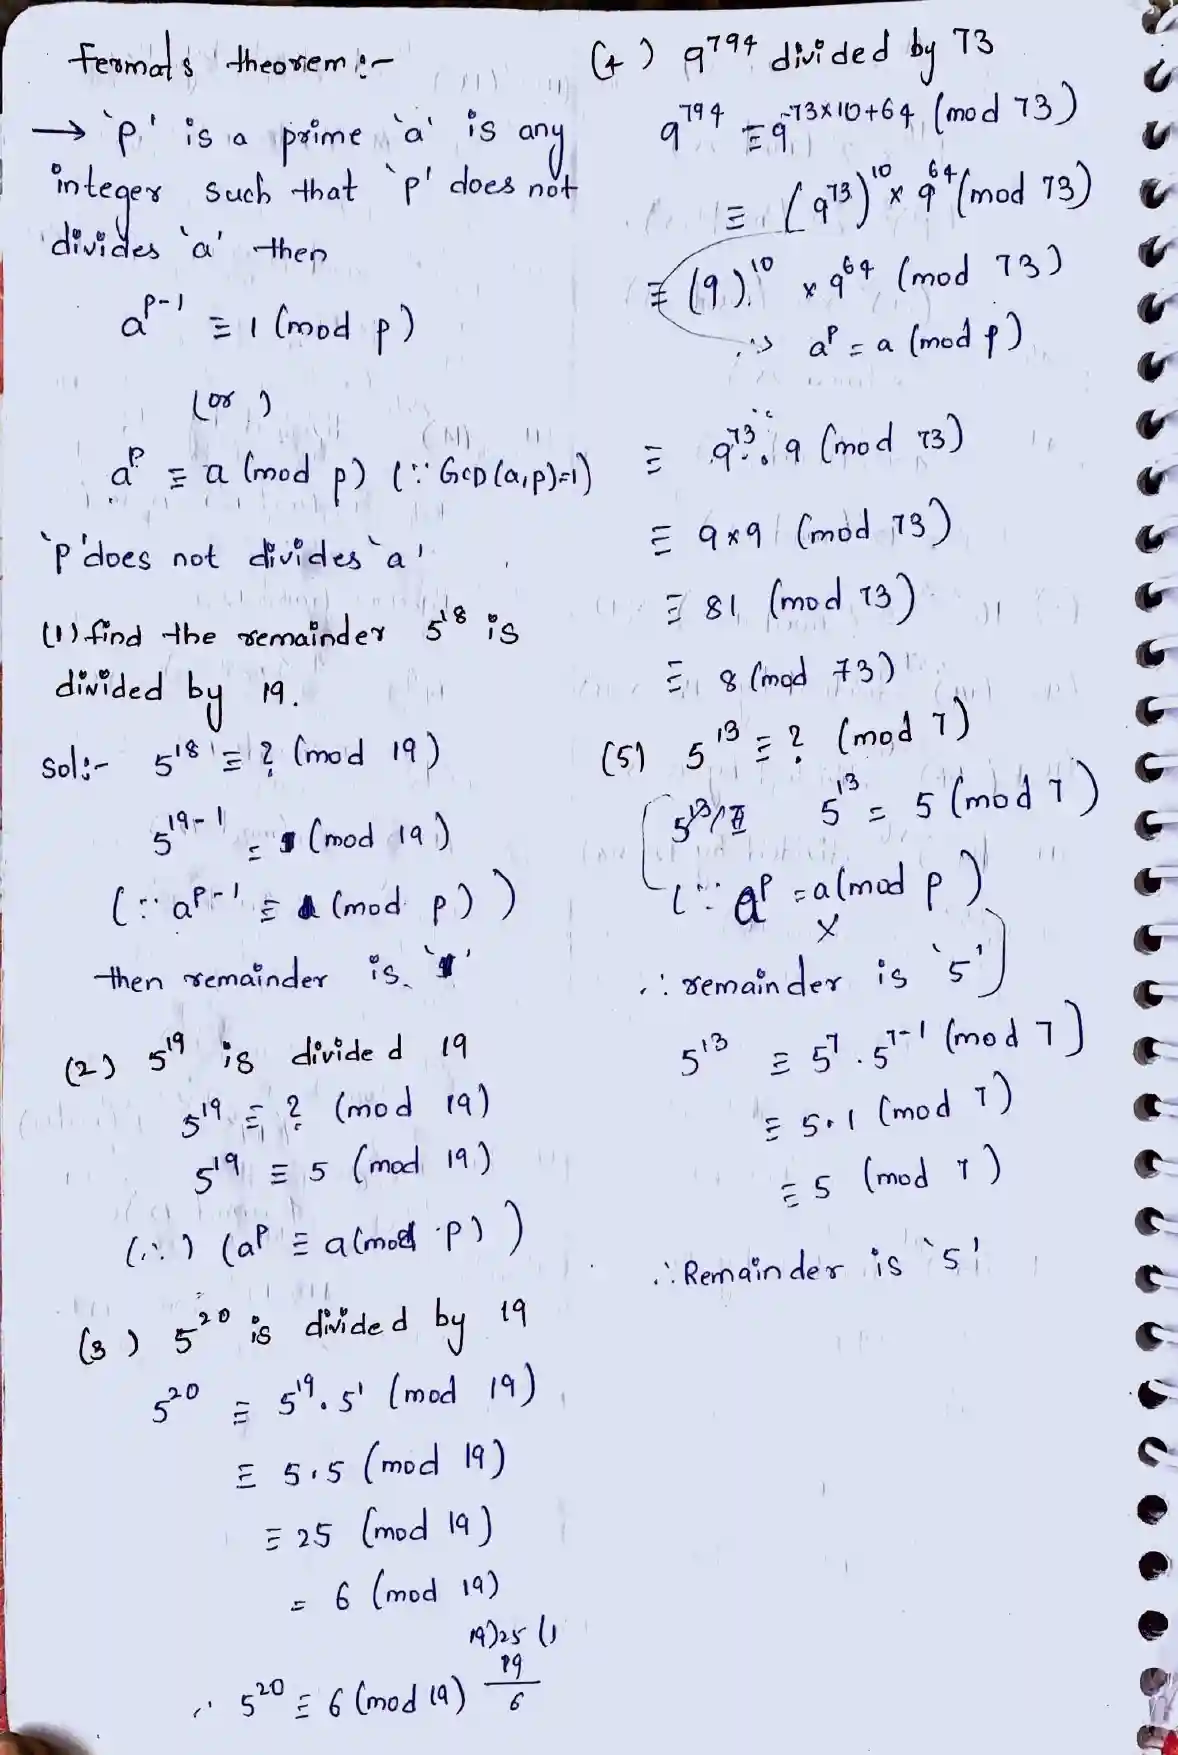 Fermat's theorem :-
→ 'p' is a prime 'a' is any
integer such that 'p' does not
divides 'a' then
a^{p-1} ≡ 1 (mod p)
(or)
a^p ≡ a (mod p) (∵ GCD(a,p)=1)
'p' does not divides 'a'
(1) find the remainder 5^{18} is
divided by 19.
Sol:- 5^{18} ≡ ? (mod 19)
5^{19-1} = 1 (mod 19)
(∵ a^{p-1} ≡ 1 (mod p))
then remainder is '1'
(2) 5^{19} is divided 19
5^{19} ≡ ? (mod 19)
5^{19} ≡ 5 (mod 19)
(∵) (a^p ≡ a (mod p))
(3) 5^{20} is divided by 19
5^{20} ≡ 5^{19} . 5^1 (mod 19)
≡ 5.5 (mod 19)
≡ 25 (mod 19)
= 6 (mod 19)
19)25(1
19
6
∴ 5^{20} ≡ 6 (mod 19)
(4) 9^{794} divided by 73
9^{794} ≡ 9^{73×10+64} (mod 73)
≡ (9^{73})^{10} × 9^{64} (mod 73)
≡ (9)^{10} × 9^{64} (mod 73)
∵ a^p = a (mod p)
≡ 9^{73} . 9 (mod 73)
≡ 9×9 (mod 73)
≡ 81 (mod 73)
≡ 8 (mod 73)
(5) 5^{13} ≡ ? (mod 7)
5^{13} = 5 (mod 7)
(∵ a^p = a (mod p)
x
∴ remainder is '5'
5^{13} ≡ 5^7 . 5^{7-1} (mod 7)
≡ 5.1 (mod 7)
≡ 5 (mod 7)
∴ Remainder is '5'